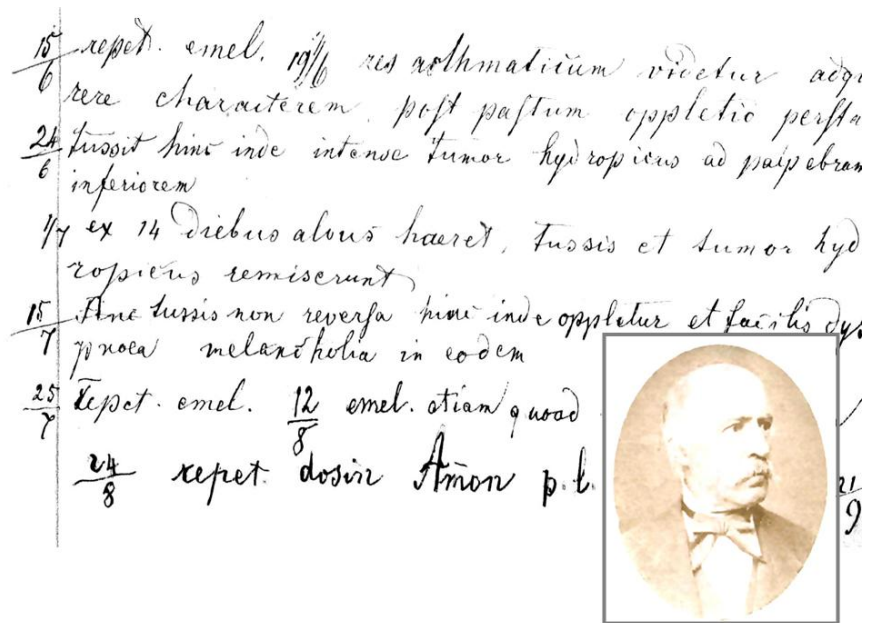 15/6 repet. emel. 19/6 res asthmaticum videtur adqi
rere characterem. post pastum oppletio persta
24/6 tussit hinc inde intense tumor hydropicus ad palpebram
inferiorem
1/7 ex 14 diebus alvus haeret, tussis et tumor hyd
ropicus remiserunt
15/7 tussis non reversa hinc inde oppletur et facilis dys
pnoea melancholia in eodem
25/7 Repet. emel. 12/8 emel. etiam quoad
24/8 repet. dosin Amon p. l. 21/9